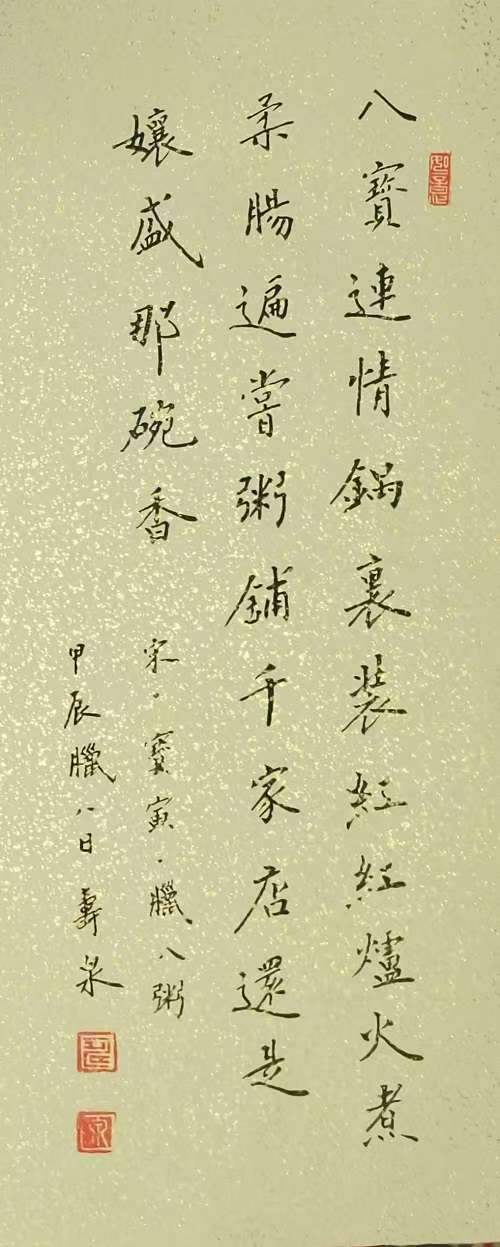 八寶連情鍋裏裝紅紅爐火煮
柔腸遍嘗粥鋪千家店還是
孃盛那碗香
宋·寶寅·臘八粥
甲辰臘八日壽泉